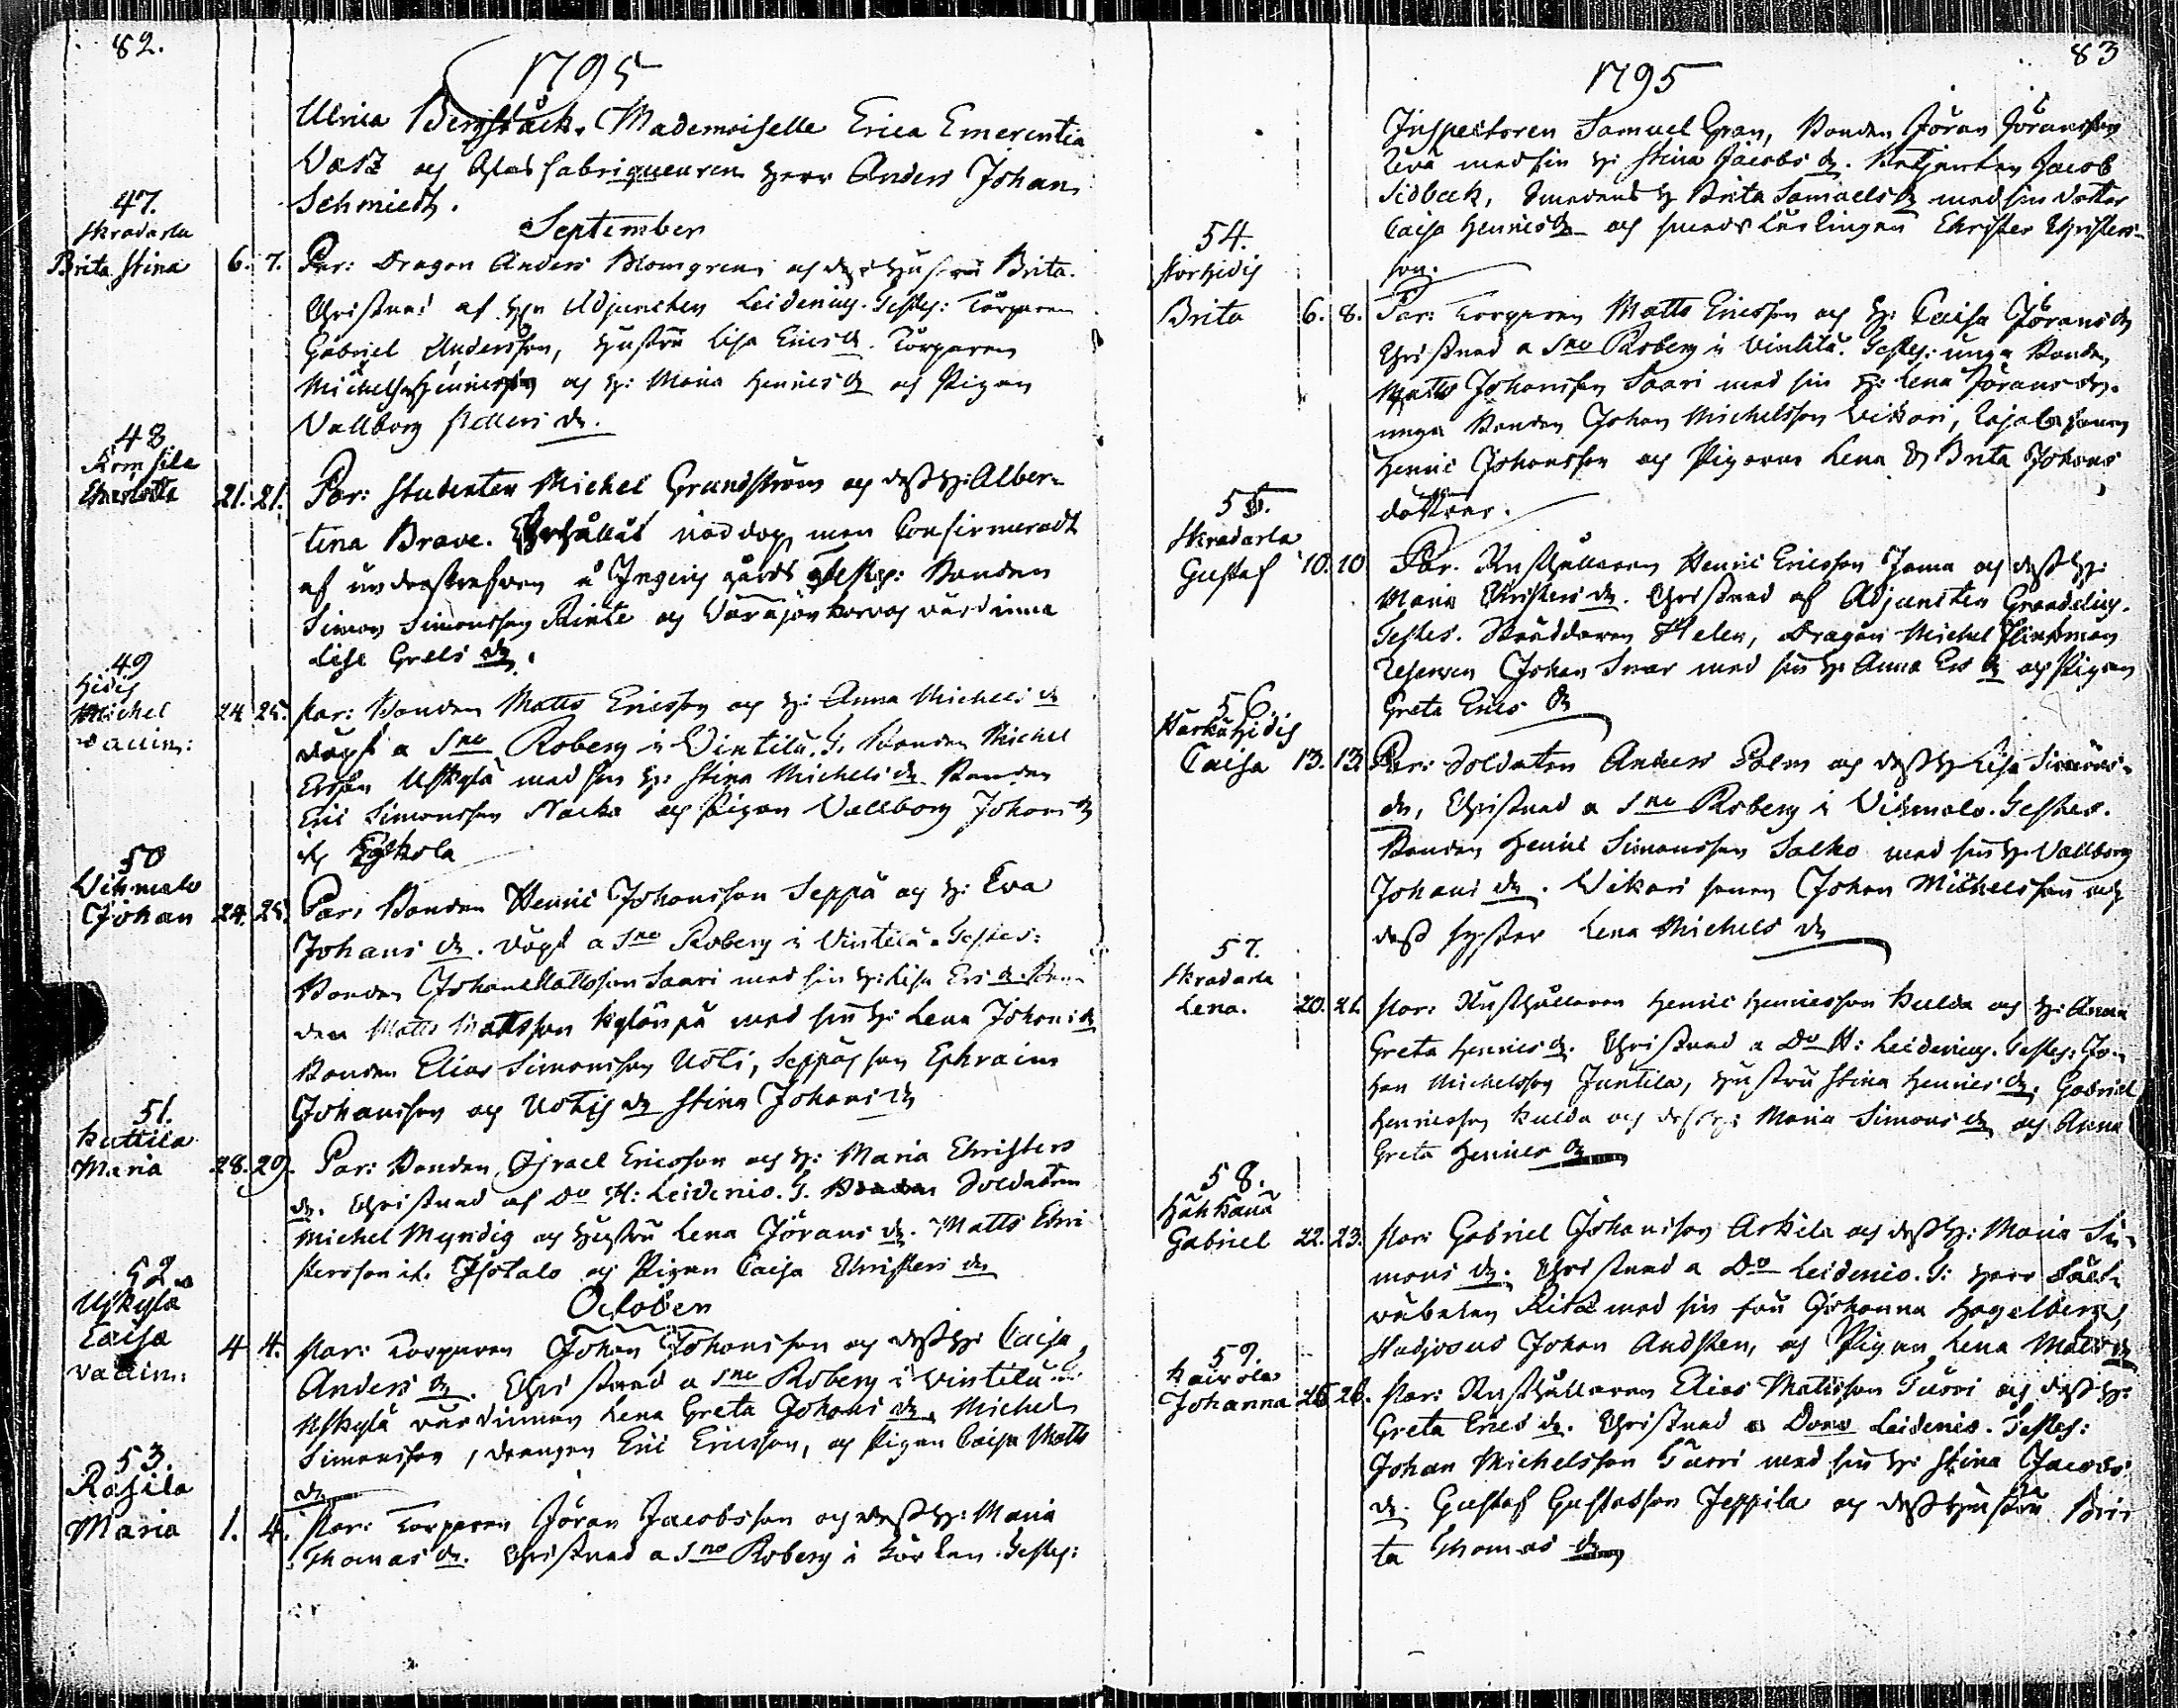 82.
1795
Ulrica Bergstäck. Mademoiselle Erica Emerentia
Vasz och Glasfabriqueuren Herr Anders Johan
Schmiedt.
September
47.
Skradarla
Brita Stina 6. 7. Par: Dragon Anders Blomgren och des Hustru Brita.
Christnad af Hr Adjuncten Leidenius. Testes: Torparen
Gabriel Andersson, Hustru Lisa Erics dr. Torparen
Michel Henricsson och H: Maria Henrics dr och Pigan
Vallborg dr.
48
Charlotta 21. 21. Par: Studenten Michel Grundström och dess H: Alber-
tina Brave. nöddop, men Confirmeradt
af underskrefwen å gård Testes: Bonden
Simon Simonsson Rinte och värdinna
Lisa Grels dr.
49
Hidis
Michel 24 25. Par: Bonden Matts Ericsson och H: Anna Michels dr
Vaccin: döpt a Sno Roberg i Vintilä. T. Bonden Michel
Ersson Uskylä med sin H: Stina Michels dr. Bonden
Eric Simonsson Nacka och Pigan Vallborg Johans dr
50
Vihmalo
Johan 24. 25. Par: Bonden Henric Johansson Seppä och H: Eva
Johans dr. döpt a Sno Roberg i Vintilä. Testes:
Bonden Johan Mattsson Saari med sin H: Lisa Ers dr. Bon-
den Matts Mattsson med sin H: Lena Johans dr
Bonden Elias Simonsson Uoti, Seppäs son Ephraim
Johansson och Uotis dr Stina Johans dr
51.
Kuttila
Maria 28. 29. Par: Bonden Israel Ericsson och H: Maria Christers
dr. Christnad af Do H: Leidenio. T. Soldaten
Michel Myndig och Hustru Lena Jörans dr. Matts Chri-
stersson if. Isotalo och Pigan Caisa Christers dr
October
52
Uskylä
Caisa 4 4. Par: Torparen Johan Johansson och dess H: Caisa
Vaccin: Anders dr. Christnad a Sno Roberg i Vintilä T:
Uskylä värdinnan Lena Greta Johans dr. Michel
Simonsson, drengen Eric Ericsson, och Pigan Caisa Matts
dr
53.
Rasila
Maria 1. 4. Par: Torparen Jöran Jacobsson och dess H: Maria
Thomas dr. Christnad a Sno Roberg i Testes:
83
1795
Inspectoren Samuel Gran, Bonden Jöran Jöransson
med sin H: Stina Jacobs dr. Jacob
Sidbeck, Smedens H Brita Samuels dr med sin dotter
Caisa Henrics dr och Christer Christers-
son.
54.
Storhidis
Brita 6. 8. Par: Torparen Matts Ericsson och H: Caisa Jörans dr
Christnad a Sno Roberg i Vintilä. Testes: unga Bonden
Matts Johansson Saari med sin H: Lena Jörans dr.
unga Bonden Johan Michelsson Vikari,
Henric Johansson och Pigorna Lena & Brita Johans
döttrar.
55.
Skradarla
Gustaf 10. 10 Par. Rusthållaren Henric Ericsson Jama och dess H:
Maria Christers dr. Christnad af Adjuncten Grandelius.
Testes. Skräddaren Helen, Dragon Michel Flinkman
Johan Snar med sin H: Anna Ers dr och Pigan
Greta Erics dr
56.
Härkähidis
Caisa 13. 13. Par: Soldaten Anders Palm och dess H: Lisa Simons-
dr, Christnad a Sno Roberg i Vihmalo. Testes.
Bonden Henric Simonsson Salko med sin H: Vallborg
Johans dr. Vikari sonen Johan Michelsson och
dess syster Lena Michels dr
57.
Skradarla
Lena. 20. 21. Par: Rusthållaren Henric Henricsson Kulda och H: Anna
Greta Henrics dr. Christnad a Do H: Leidenius. Testes: Jo-
han Michelsson Juntila, Hustru Stina Henrics dr, Gabriel
Henricsson Kulda och dess H: Maria Simons dr och Anna
Greta Henrics dr
58.
Hähkänä
Gabriel 22. 23. Par: Gabriel Johansson Arkila och dess H: Maria Si-
mons dr. Christnad a Do Leidenio. T: Herr Fält-
wäbelen Ritz med sin fru Johanna Hagelberg,
Studiosus Johan Andsten, och Pigan Lena Matts dr
59.
Kairola
Johanna 25 26. Par: Rusthållaren Elias Mattsson Tuori och dess H:
Greta Erics dr. Christnad a Dno Leidenio. Testes:
Johan Michelsson Tuori med sin H: Stina Jacobs
dr. Gustaf Gustafsson Jeppila och dess Hustru Bri-
ta Thomas dr